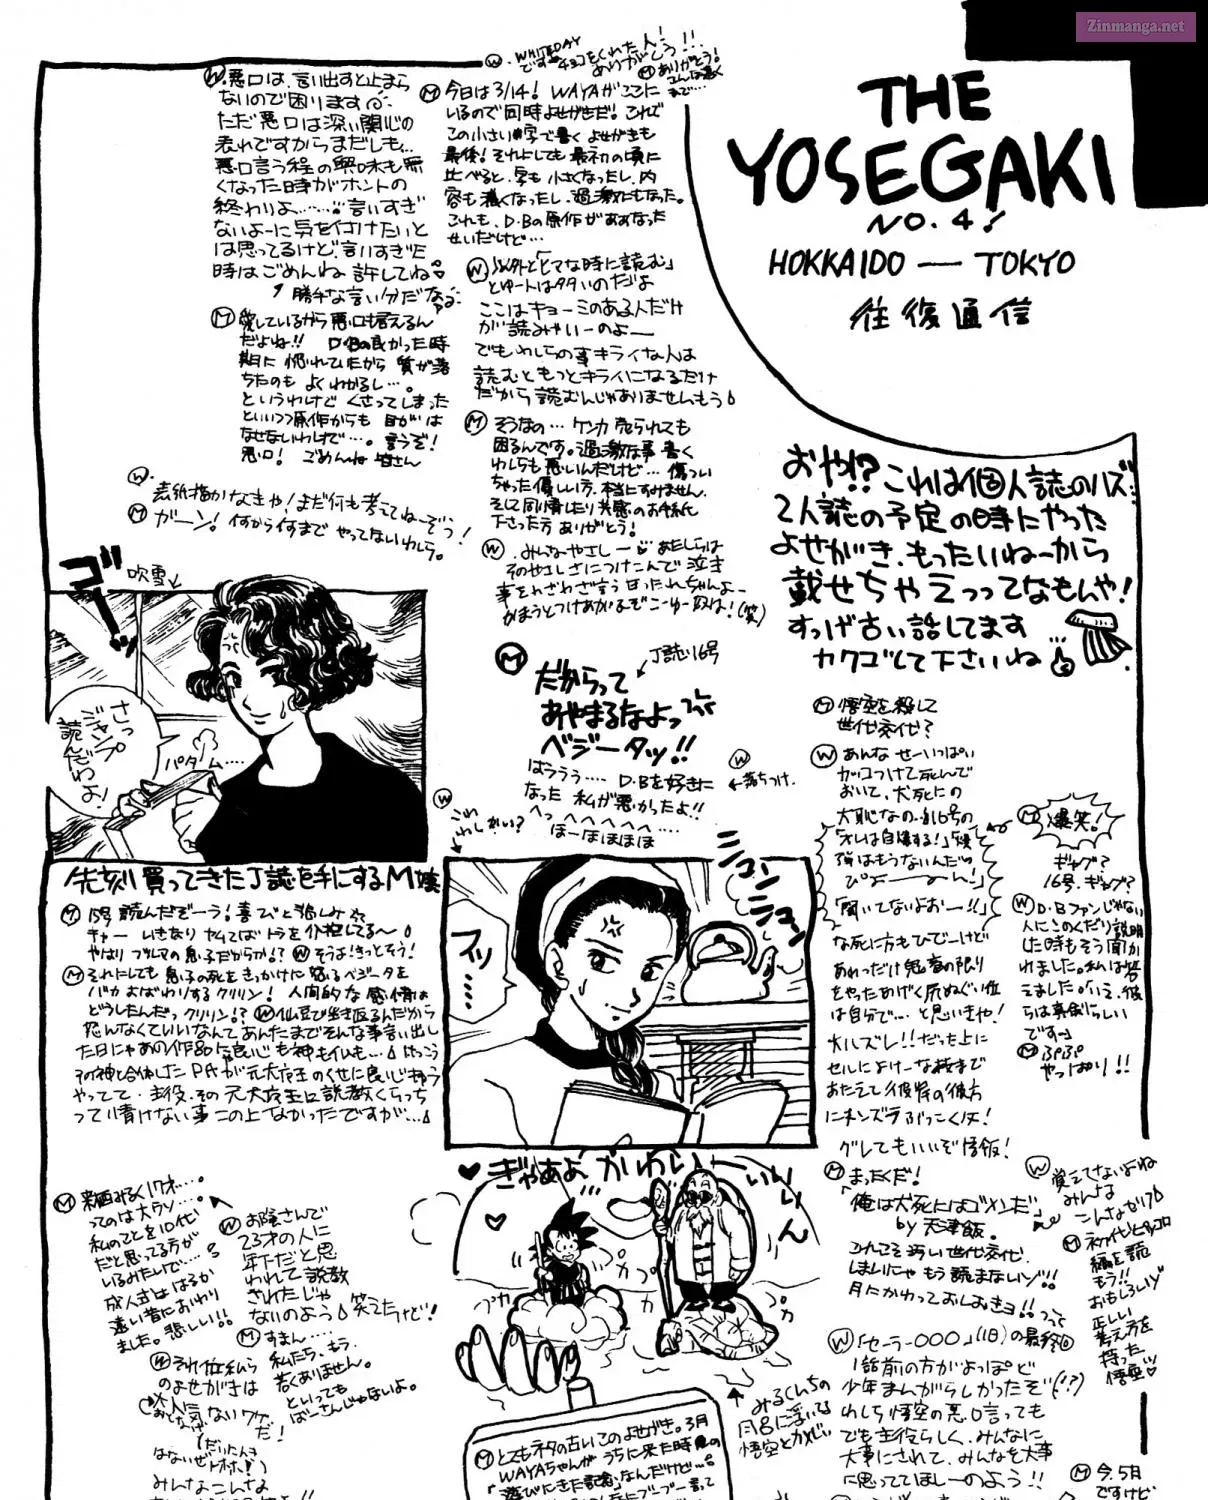 Zinmanga.net
THE
YOSEGAKI
NO.4!
HOKKAIDO — TOKYO
往復通信
おや!? これは個人誌のハズ…
2人誌の予定の時にやった
よせがき、もったいねーから
載せちゃえってなもんや!
すっげ古い話してます
カクゴして下さいね
W. WHITEDAY
です チョコをくれた人!
ありがとう!!
M ありがとう!
W. 悪口は、言い出すと止まら
ないので困ります
ただ悪口は深い関心の
表れですからまだしも…
悪口言う程の興味も無
くなった時がホントの
終わりよ……言いすぎ
ないよーに気を付けたいと
は思ってるけど、言いすぎた
時はごめんね 許してね
勝手な言い分だなぁ
M 愛しているから悪口も言えるん
だよね!! D・Bの良かった時
期に惚れていたから 質が落
ちたのも よくわかるし…。
というわけで くさってしまった
といいつつ原作からも 目がは
なせないわけで…。言うぞ!
悪口! ごめんね 皆さん
W. 表紙描かなきゃ!まだ何も考えてねーぞっ!
M ガーン! 何から何まで やってないわしら。
M 今日は3/14! WAYAがここに
いるので同時よせがきだ! これで
この小さい字で書く よせがきも
最後! それにしても 最初の頃に
比べると、字も小さくなったし、内
容も濃くなったし、過激にもなった。
これも、D・Bの原作がああなった
せいだけど…
ここはキョーミのある人だけ
が読みゃいーのよー
でもわしらの事キライな人は
読むともっとキライになるだけ
だから 読むんじゃありませんもう
M そうなの… ケンカ売られても
困るんです。過激な事 書く
わしらも悪いんだけど… 傷つい
ちゃった優しい方、本当にすみません。
そして同情したり共感のお手紙
下さった方 ありがとう!
W. みんなやさしー あたしらは
そのやさしさにつけこんで泣き
事をわざわざ言う甘ったれちゃんよー
かまうとつけあがるぞこーゆー奴は!(笑)
M だからって
あやまるなよっ
ベジータッ!!
J誌16号
はううう…… D・Bを好きに
なった 私が悪かったよ!!
へっへへへへへ….
ほーほほほほほ
W
←落ちつけ.
ゴーッ
吹雪
さっ
ジャンプ
読んだわよ!
パタム….
先刻買ってきたJ誌を手にするM嬢
W
これ
わしかい?
フッ……
M 15号 読んだぞーう! 喜びと悲しみ
チャー いきなり ヤムてばトラを介抱してる〜
やはり ブルマの息子だからか!? W そうよ!きっとそう!
M それにしても 息子の死をきっかけに怒るベジータを
バカよばわりするクリリン! 人間的な感情は
どうしたんだっ クリリン!? W 仙豆が生き返るんだから
死んなくていいなんて あんたまでそんな事言い出し
た日にゃあの作品にゃ良心も神もイムも… けっこう
その神と合体したPさんが元大魔王のくせに良い心もつ
やってて、主役、その元大魔王に説教くらっち
って情けない事この上なかったですが…
M 悟空を殺して
世代交代?
W あんな せーいっぱい
カッコつけて死んで
おいて、犬死にの
大恥なの。16号の
「オレは自爆する!」「爆
弾はもうないんだ」
ぴよーん!」
「聞いてないよおー!!」
な死に方もひでーけど
あれっだけ鬼畜の限り
をやったあげく尻ぬぐい位
は自分で…と思いきや!
大ハズレ!! だった上に
セルによけーな技まで
あたえし彼岸の彼方
にトンズラぶっこくた!
グレてもいいぞ悟飯!
M 爆笑!
ギャグ?
16号.ギャグ?
W D・Bファンじゃない
人にこのくだり説明
した時もそう聞か
れました。私は答
えましたがいえ、彼
らは真剣らしい
です
M ぷぷぷ
やっぱり!!
M まったくだ!
「俺は犬死にはゴメンだ」
by 天津飯。
こんな汚い世代交代、
しまいにゃ もう読まないゾ!!
月にかわっておしおきョ!!って
W 覚えてないよね
みんな
こんなかけひき
M 初代ピッコロ
編を読
もう!!
おもしろいゾ
正しい
考え方を
持った
悟空
W 「セーラー○○○」(旧)の最終回
1話前の方がよっぽど
少年まんがらしかったぞ(!?)
わしら悟空の悪口言っても
でも主役らしく、みんなに
大事にされて、みんなを大事
に思っててほしーのよう!!
M 今、5日
ですけど
ぎゃあよ かわいーいいいりん
プカ
プカ
プカ
みるくんちの
月呂に浮いてる
悟空とかめじい
ってのは大ウソ…
私のことを10代
だと思ってる方が
いるみたいで…
成人式ははるか
遠い昔におわり
ました。悲しい!!
W お陰さんで
23才の人に
年下だと思
われて 説教
されたじゃ
ないのよう 笑えたけど!
M すまん….
私たち、もう、
若くありません。
といっても
ばーさんじゃないよ。
W それ位私ら
のよせがきは
大人気ないワケ
だ!
みんなこんな
M とてもネタの古いこのよせがき。3月
WAYAちゃんが うちに来た時の
「遊びにきた記念」なんだけど…